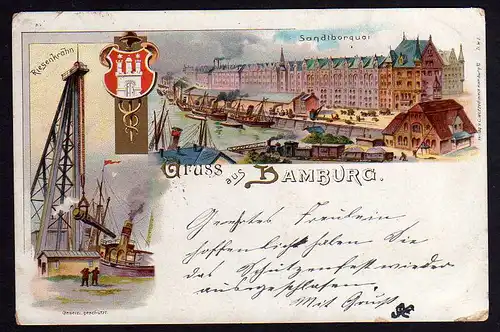 Riesenkrahn
Sandthorquai
Gruss aus Hamburg.
Geehrtes Fräulein
hoffentlich haben Sie
das Schützenfest wieder
ausgeschlafen.
Mit Gruß
Gesetzl. geschützt.